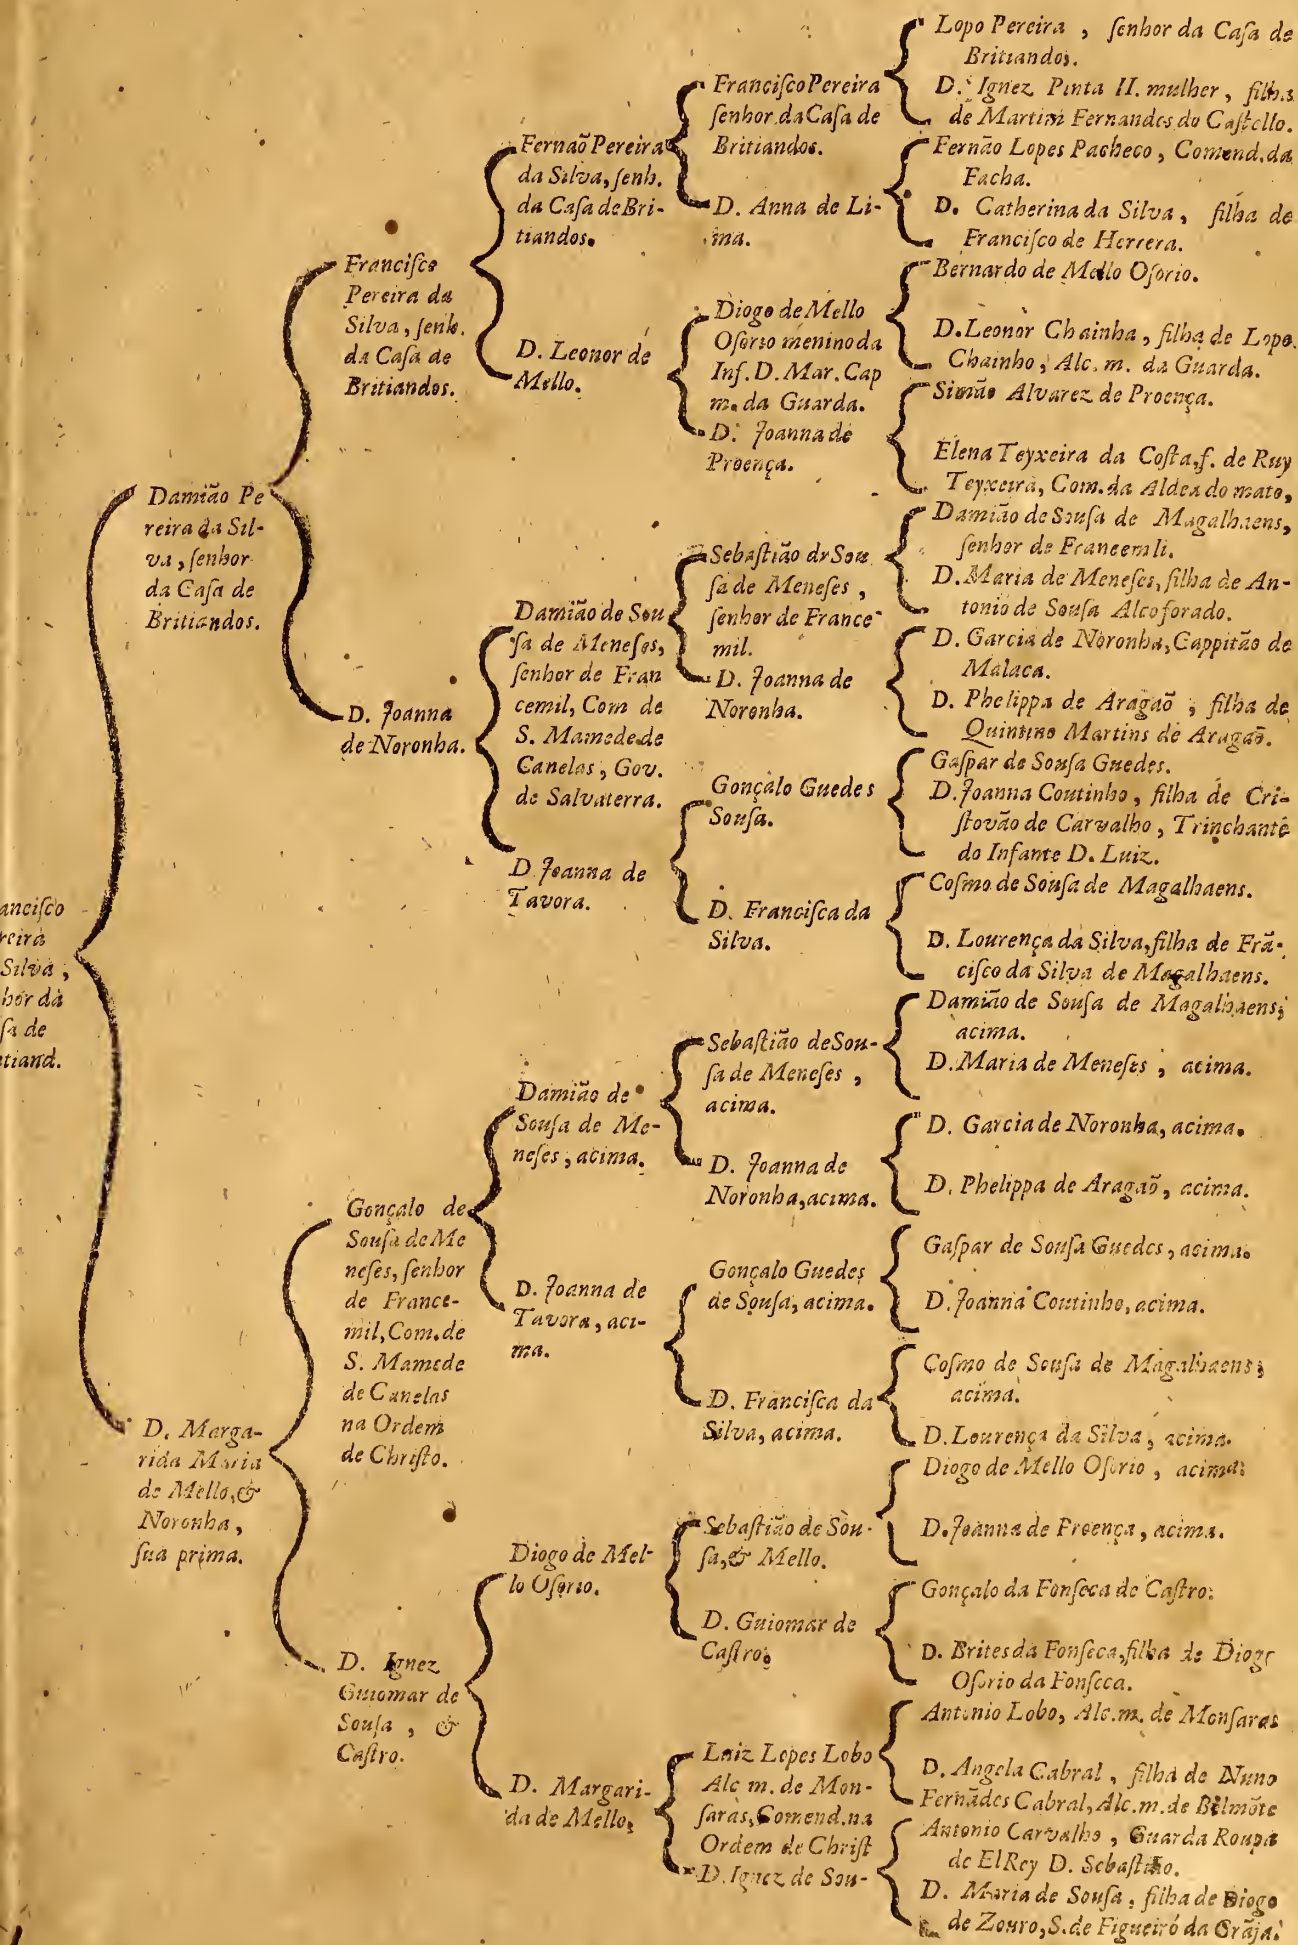 Francisco
Pereira
Silva,
hor dà
sa de
tiand.
Damião Pe
reira da Sil-
va, senhor
da Casa de
Britiandos.
D. Marga-
rida Maria
de Mello, &
Noronha,
sua prima.
Francisco
Pereira da
Silva, senh.
da Casa de
Britiandos.
D. Joanna
de Noronha.
Gonçalo de
Sousa de Me
neses, senhor
de France-
mil, Com. de
S. Mamede
de Canelas
na Ordem
de Christo.
D. Ignez
Guiomar de
Sousa, &
Castro.
Fernaõ Pereira
da Silva, senh.
da Casa de Bri-
tiandos.
D. Leonor de
Mello.
Damião de Sou
sa de Meneses,
senhor de Fran
cemil, Com de
S. Mamede de
Canelas, Gov.
de Salvaterra.
D Joanna de
Tavora.
Damião de
Sousa de Me-
neses, acima.
D. Joanna de
Tavora, aci-
ma.
Diogo de Mel-
lo Osorio.
D. Margari-
da de Mello,
Francisco Pereira
senhor da Casa de
Britiandos.
D. Anna de Li-
ma.
Diogo de Mello
Osorio menino da
Inf. D. Mar. Cap
m. da Guarda.
D. Joanna de
Proença.
Sebastião dr Sou
sa de Meneses,
senhor de France
mil.
D. Joanna de
Noronha.
Gonçalo Guedes
Sousa.
D. Francisca da
Silva.
Sebastião de Sou-
sa de Meneses,
acima.
D. Joanna de
Noronha, acima.
Gonçalo Guedes
de Sousa, acima.
D. Francisca da
Silva, acima.
Sebastião de Sou-
sa, & Mello.
D. Guiomar de
Castro.
Luiz Lopes Lobo
Alc m. de Mon-
saràs, Comend. na
Ordem de Christ
D. Ignez de Sou-
Lopo Pereira, senhor da Casa de
Britiandos.
D. Ignez Pinta II. mulher, filha
de Martim Fernandes do Castello.
Fernão Lopes Pacheco, Comend. da
Facha.
D. Catherina da Silva, filha de
Francisco de Herrera.
Bernardo de Mello Osorio.
D. Leonor Chainha, filha de Lopo
Chainho, Alc. m. da Guarda.
Simão Alvarez de Proença.
Elena Teyxeira da Costa, f. de Ruy
Teyxeira, Com. da Aldea do mato,
Damião de Sousa de Magalhaens,
senhor de Franeemli.
D. Maria de Meneses, filha de An-
tonio de Sousa Alcoforado.
D. Garcia de Noronha, Cappitão de
Malaca.
D. Phelippa de Aragaõ, filha de
Quintino Martins de Aragaõ.
Gaspar de Sousa Guedes.
D. Joanna Coutinho, filha de Cri-
stovão de Carvalho, Trinchante
do Infante D. Luiz.
Cosmo de Sousa de Magalhaens.
D. Lourença da Silva, filha de Frã-
cisco da Silva de Magalhaens.
Damião de Sousa de Magalhaens,
acima.
D. Maria de Meneses, acima.
D. Garcia de Noronha, acima.
D. Phelippa de Aragaõ, acima.
Gaspar de Sousa Guedes, acima.
D. Joanna Coutinho, acima.
Cosmo de Sousa de Magalhaens,
acima.
D. Lourença da Silva, acima.
Diogo de Mello Osorio, acima.
D. Joanna de Proença, acima.
Gonçalo da Fonseca de Castro.
D. Brites da Fonseca, filha de Diogo
Osorio da Fonseca.
Antonio Lobo, Alc. m. de Monsaras
D. Angela Cabral, filha de Nuno
Fernãdes Cabral, Alc. m. de Bèlmõte
Antonio Carvalho, Guarda Roupa
de ElRey D. Sebastião.
D. Maria de Sousa, filha de Diogo
de Zouro, S. de Figueiró da Grãja.